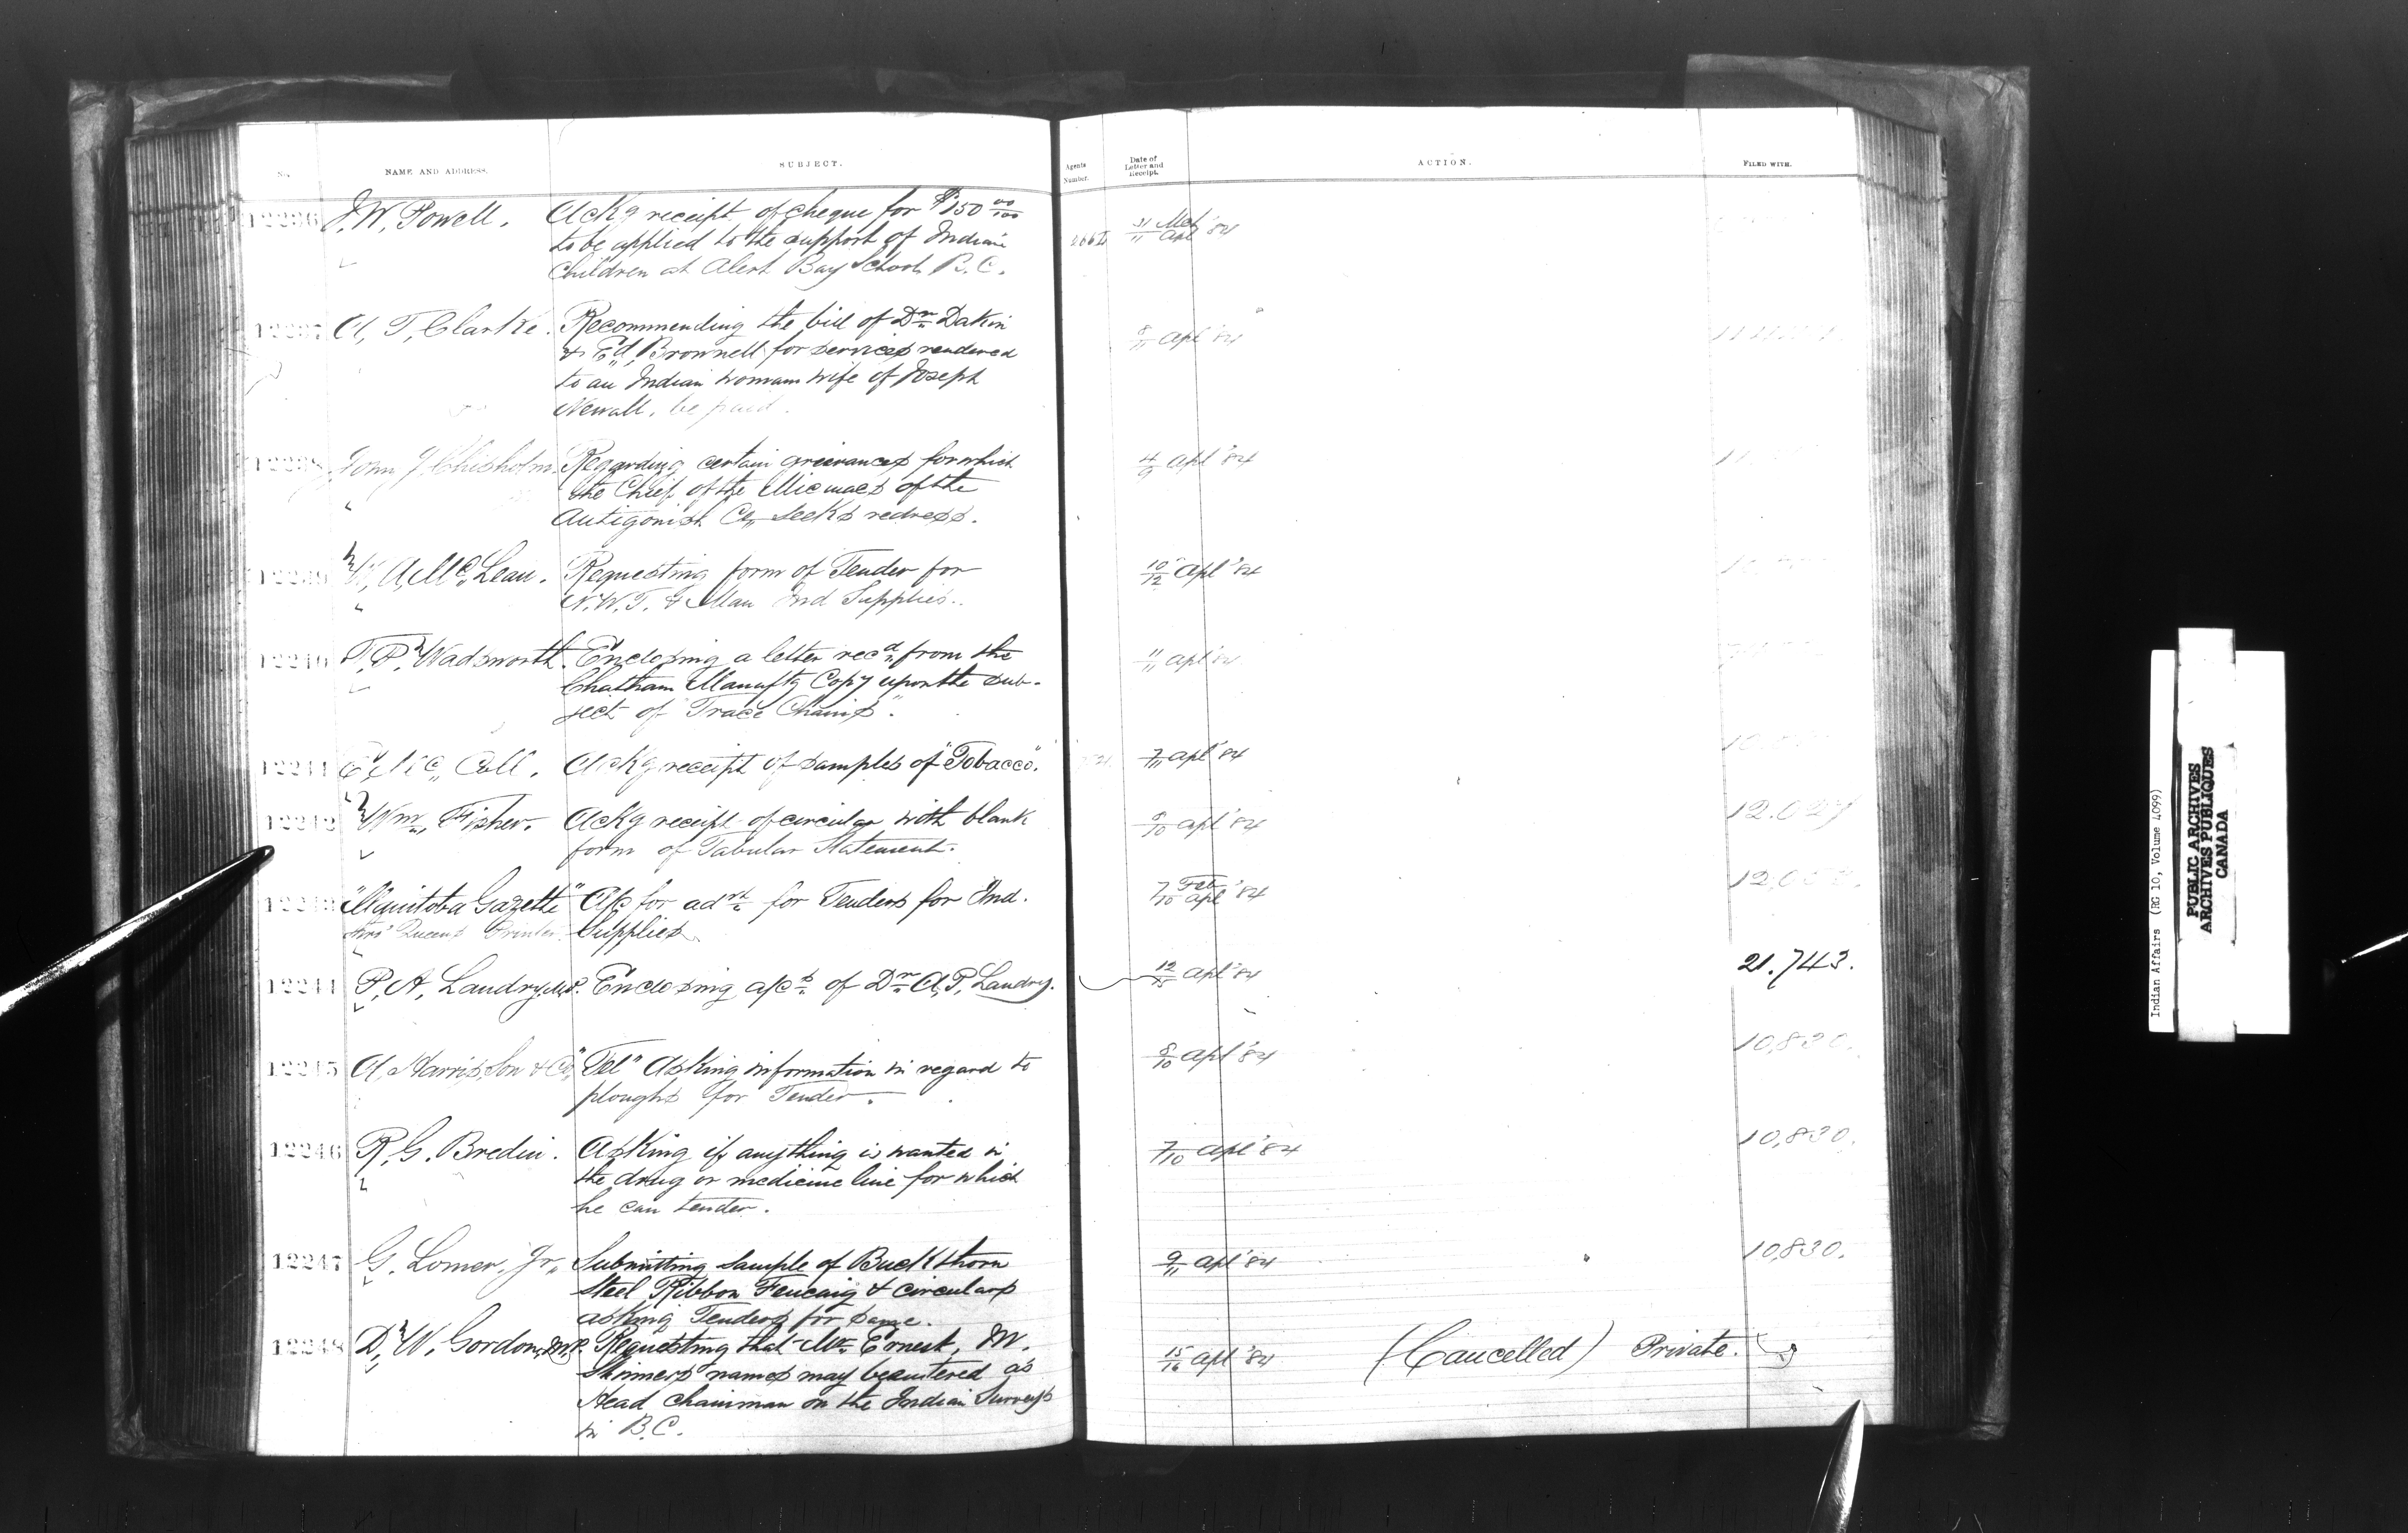 No. NAME AND ADDRESS. SUBJECT. Agents Number. Date of Letter and Receipt. ACTION. FILED WITH.
12236 I. W. Powell. Ackg receipt of cheque for $150 00/100 31/11 Mch/Apl '84
to be applied to the support of Indian
Children at Alert Bay School B.C.
12237 A. T. Clarke. Recommending the bill of Dr Dakin 8/11 Apl '84
& Ed. Brownell for services rendered
to an Indian woman wife of Joseph
Newall, be paid.
12238 John J. Chisholm. Regarding certain grievances for which 4/9 Apl '84
the Chief of the Micmacs of the
Antigonish Co, seeks redress.
12239 W, A, Mc, Lean. Requesting form of Tender for 10/12 Apl '84
N.W.T. & Man Ind Supplies.
12240 T. P. Wadsworth. Enclosing a letter recd from the 11/11 Apl '84
Chatham Manuftg Copy upon the sub-
ject of "Trace Chains".
12241 E, Mc, Coll. Ackg receipt of samples of "Tobacco". 7/11 Apl '84
12242 Wm, Fisher. Ackg receipt of circular with blank 9/10 Apl '84 12.027
form of Tabular Statement.
12243 "Manitoba Gazette" A/c for advt for Tenders for Ind. 7/10 Feb/Apl '84
Queens Printer Supplies
12244 P, A, Landry, M.P. Enclosing a/cs of Dr A, P, Landry. 12/15 Apl '84 21.743.
12245 A, Harris, Son & Co, "Tel" Asking information in regard to 8/10 Apl '84 10,830.
ploughs for Tender.
12246 R, G. Bredin. Asking if anything is wanted in 7/10 Apl '84 10,830.
the drug or medicine line for which
he can tender.
12247 G. Lomer, Jr,, Submitting sample of Buckthorn 9/11 Apl '84 10,830.
Steel Ribbon Fencing & circulars
asking Tenders for same.
12248 D, W. Gordon, M.P. Requesting that Mr Ernest, M. 15/16 Apl '84 (Cancelled) Private.
Skinners names may be entered as
Head chainman on the Indian Surveys
in B.C.
Indian Affairs (RG 10, Volume 4099)
PUBLIC ARCHIVES
ARCHIVES PUBLIQUES
CANADA